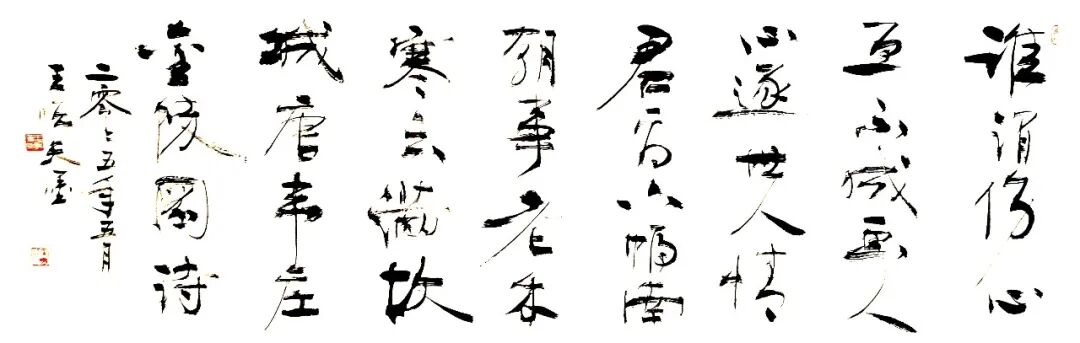 谁谓伤心
画不成画人
心逐世人情
君看六幅南
朝事老木
寒云满故
城唐韦庄
金陵图诗
二零二五年五月
王晓夫墨